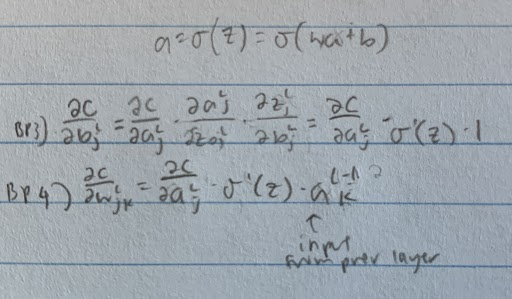 a = σ(z) = σ(wa+b)
BP3) ∂C/∂b_j^l = ∂C/∂a_j^l · ∂a_j^l/∂z_j^l · ∂z_j^l/∂b_j^l = ∂C/∂a_j^l · σ'(z) · 1
BP4) ∂C/∂w_jk^l = ∂C/∂a_j^l · σ'(z) · a_k^(l-1) ?
↑
input
from prev layer